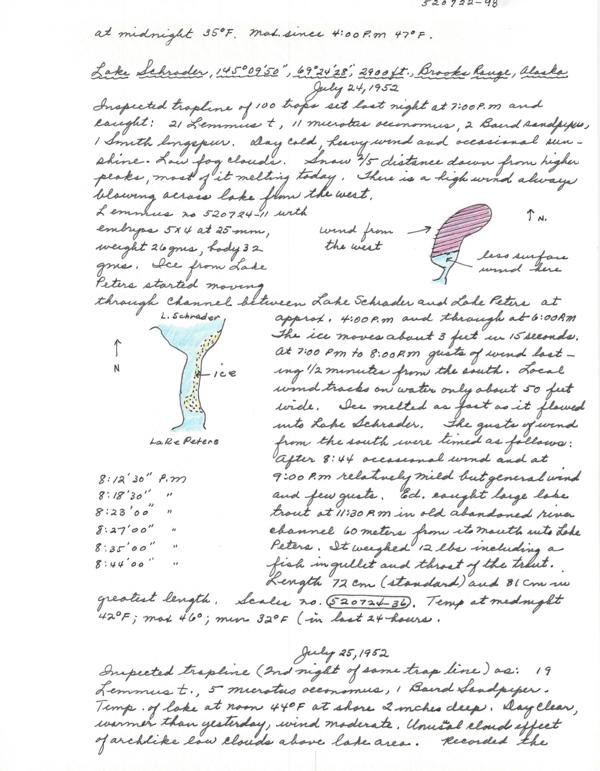 520722-98
at midnight 35°F. Max. since 4:00 P.m 47°F.
Lake Schrader, 145°09'50", 69°24'28", 2900 ft., Brooks Range, Alaska
July 24, 1952
Inspected trapline of 100 traps set last night at 7:00 P.m and
caught: 21 Lemmus t, 11 microtus oeconomus, 2 Baird sandpipers,
1 Smith longspur. Day cold, heavy wind and occasional sun-
shine. Low fog clouds. Snow 2/5 distance down from higher
peaks, most of it melting today. There is a high wind always
blowing across lake from the west.
Lemmus no 520724-11 with
embryos 5x4 at 25 mm,
weight 26 gms, body 32
gms. Ice from Lake
Peters started moving
wind from
the west
↑ N.
less surface
wind here
through channel between Lake Schrader and Lake Peters at
approx. 4:00 P.m and through at 6:00 P.M
The ice moves about 3 feet in 15 seconds.
At 7:00 Pm to 8:00 P.m gusts of wind last-
ing 1/2 minutes from the south. Local
wind tracks on water only about 50 feet
wide. Ice melted as fast as it flowed
into Lake Schrader. The gusts of wind
from the south were timed as follows:
After 8:44 occasional wind and at
9:00 P.m relatively mild but general wind
and few gusts. Ed. caught large lake
trout at 11:30 P.m in old abandoned river
channel 60 meters from its mouth into Lake
Peters. It weighed 12 lbs including a
fish in gullet and throat of the trout.
Length 72 cm (standard) and 81 cm in
L. Schrader
↑
N
ice
Lake Peters
8:12'30" P.m
8:18'30" "
8:23'00" "
8:27'00" "
8:35'00" "
8:44'00" "
greatest length. Scales no. 520724-36. Temp at midnight
42°F; max 46°; min 32°F (in last 24 hours.
July 25, 1952
Inspected trapline (2nd night of same trap line) as: 19
Lemmus t., 5 microtus oeconomus, 1 Baird Sandpiper.
Temp. of lake at noon 44°F at shore 2 inches deep. Day clear,
warmer than yesterday, wind moderate. Unusual cloud effect
of archlike low clouds above lake area. Recorded the